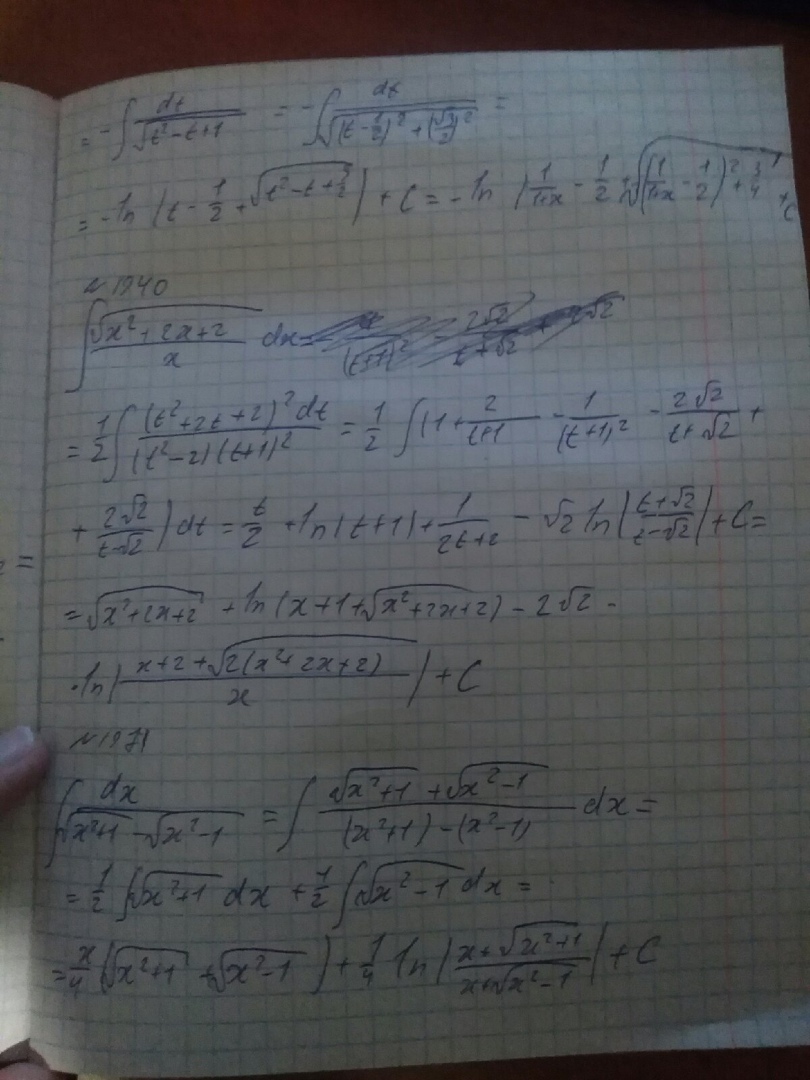 = -∫ dt/√(t²-t+1) = -∫ dt/√((t-1/2)²+(√3/2)²) =
= -ln |t - 1/2 + √(t²-t+ )| + C = -ln | 1/(1+x) - 1/2 + √((1/(1+x) - 1/2)² + 3/4) + C
N 1940
∫ √(x²+2x+2)/x dx =
= 1/2 ∫ (t²+2t+2)² dt/((t²-2)(t+1)²) = 1/2 ∫ (1 + 2/(t+1) - 1/(t+1)² - 2√2/(t+√2) +
+ 2√2/(t-√2)) dt = t/2 + ln|t+1| + 1/(2t+2) - √2 ln |(t+√2)/(t-√2)| + C =
= √(x²+2x+2) + ln(x+1+√(x²+2x+2)) - 2√2 ·
· ln | (x+2+√(2(x²+2x+2)))/x | + C
N 1971
∫ dx/(√(x²+1) - √(x²-1)) = ∫ (√(x²+1) + √(x²-1))/((x²+1) - (x²-1)) dx =
= 1/2 ∫ √(x²+1) dx + 1/2 ∫ √(x²-1) dx =
= x/4 (√(x²+1) + √(x²-1)) + 1/4 ln | (x+√(x²+1))/(x+√(x²-1)) | + C
=